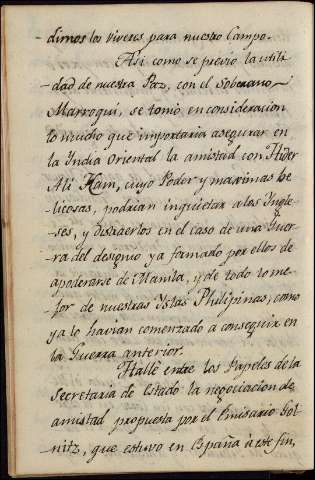 dirnos los viveres para nuestro Campo.
Asi como se previó la utili-
-dad de nuestra Paz, con el Soberano
Marroqui, se tomó en consideracion
lo mucho que importaria asegurar en
la Yndia Oriental la amistad con Hider
Ali Kam, cuyo Poder y maximas be-
licosas, podrian inquietar a los Yngle-
-ses, y distraerlos en el caso de una Guer-
-ra del designio ya formado por ellos de
apoderarse de Manila, y de todo lo me-
-jor de nuestras Yslas Philipinas, como
ya lo havian comenzado a conseguir en
la Guerra anterior.
Hallé entre los Papeles de la
Secretaria de Estado la negociacion de
amistad propuesta por el Emisario Gol-
-nitz, que estuvo en España à este fin,